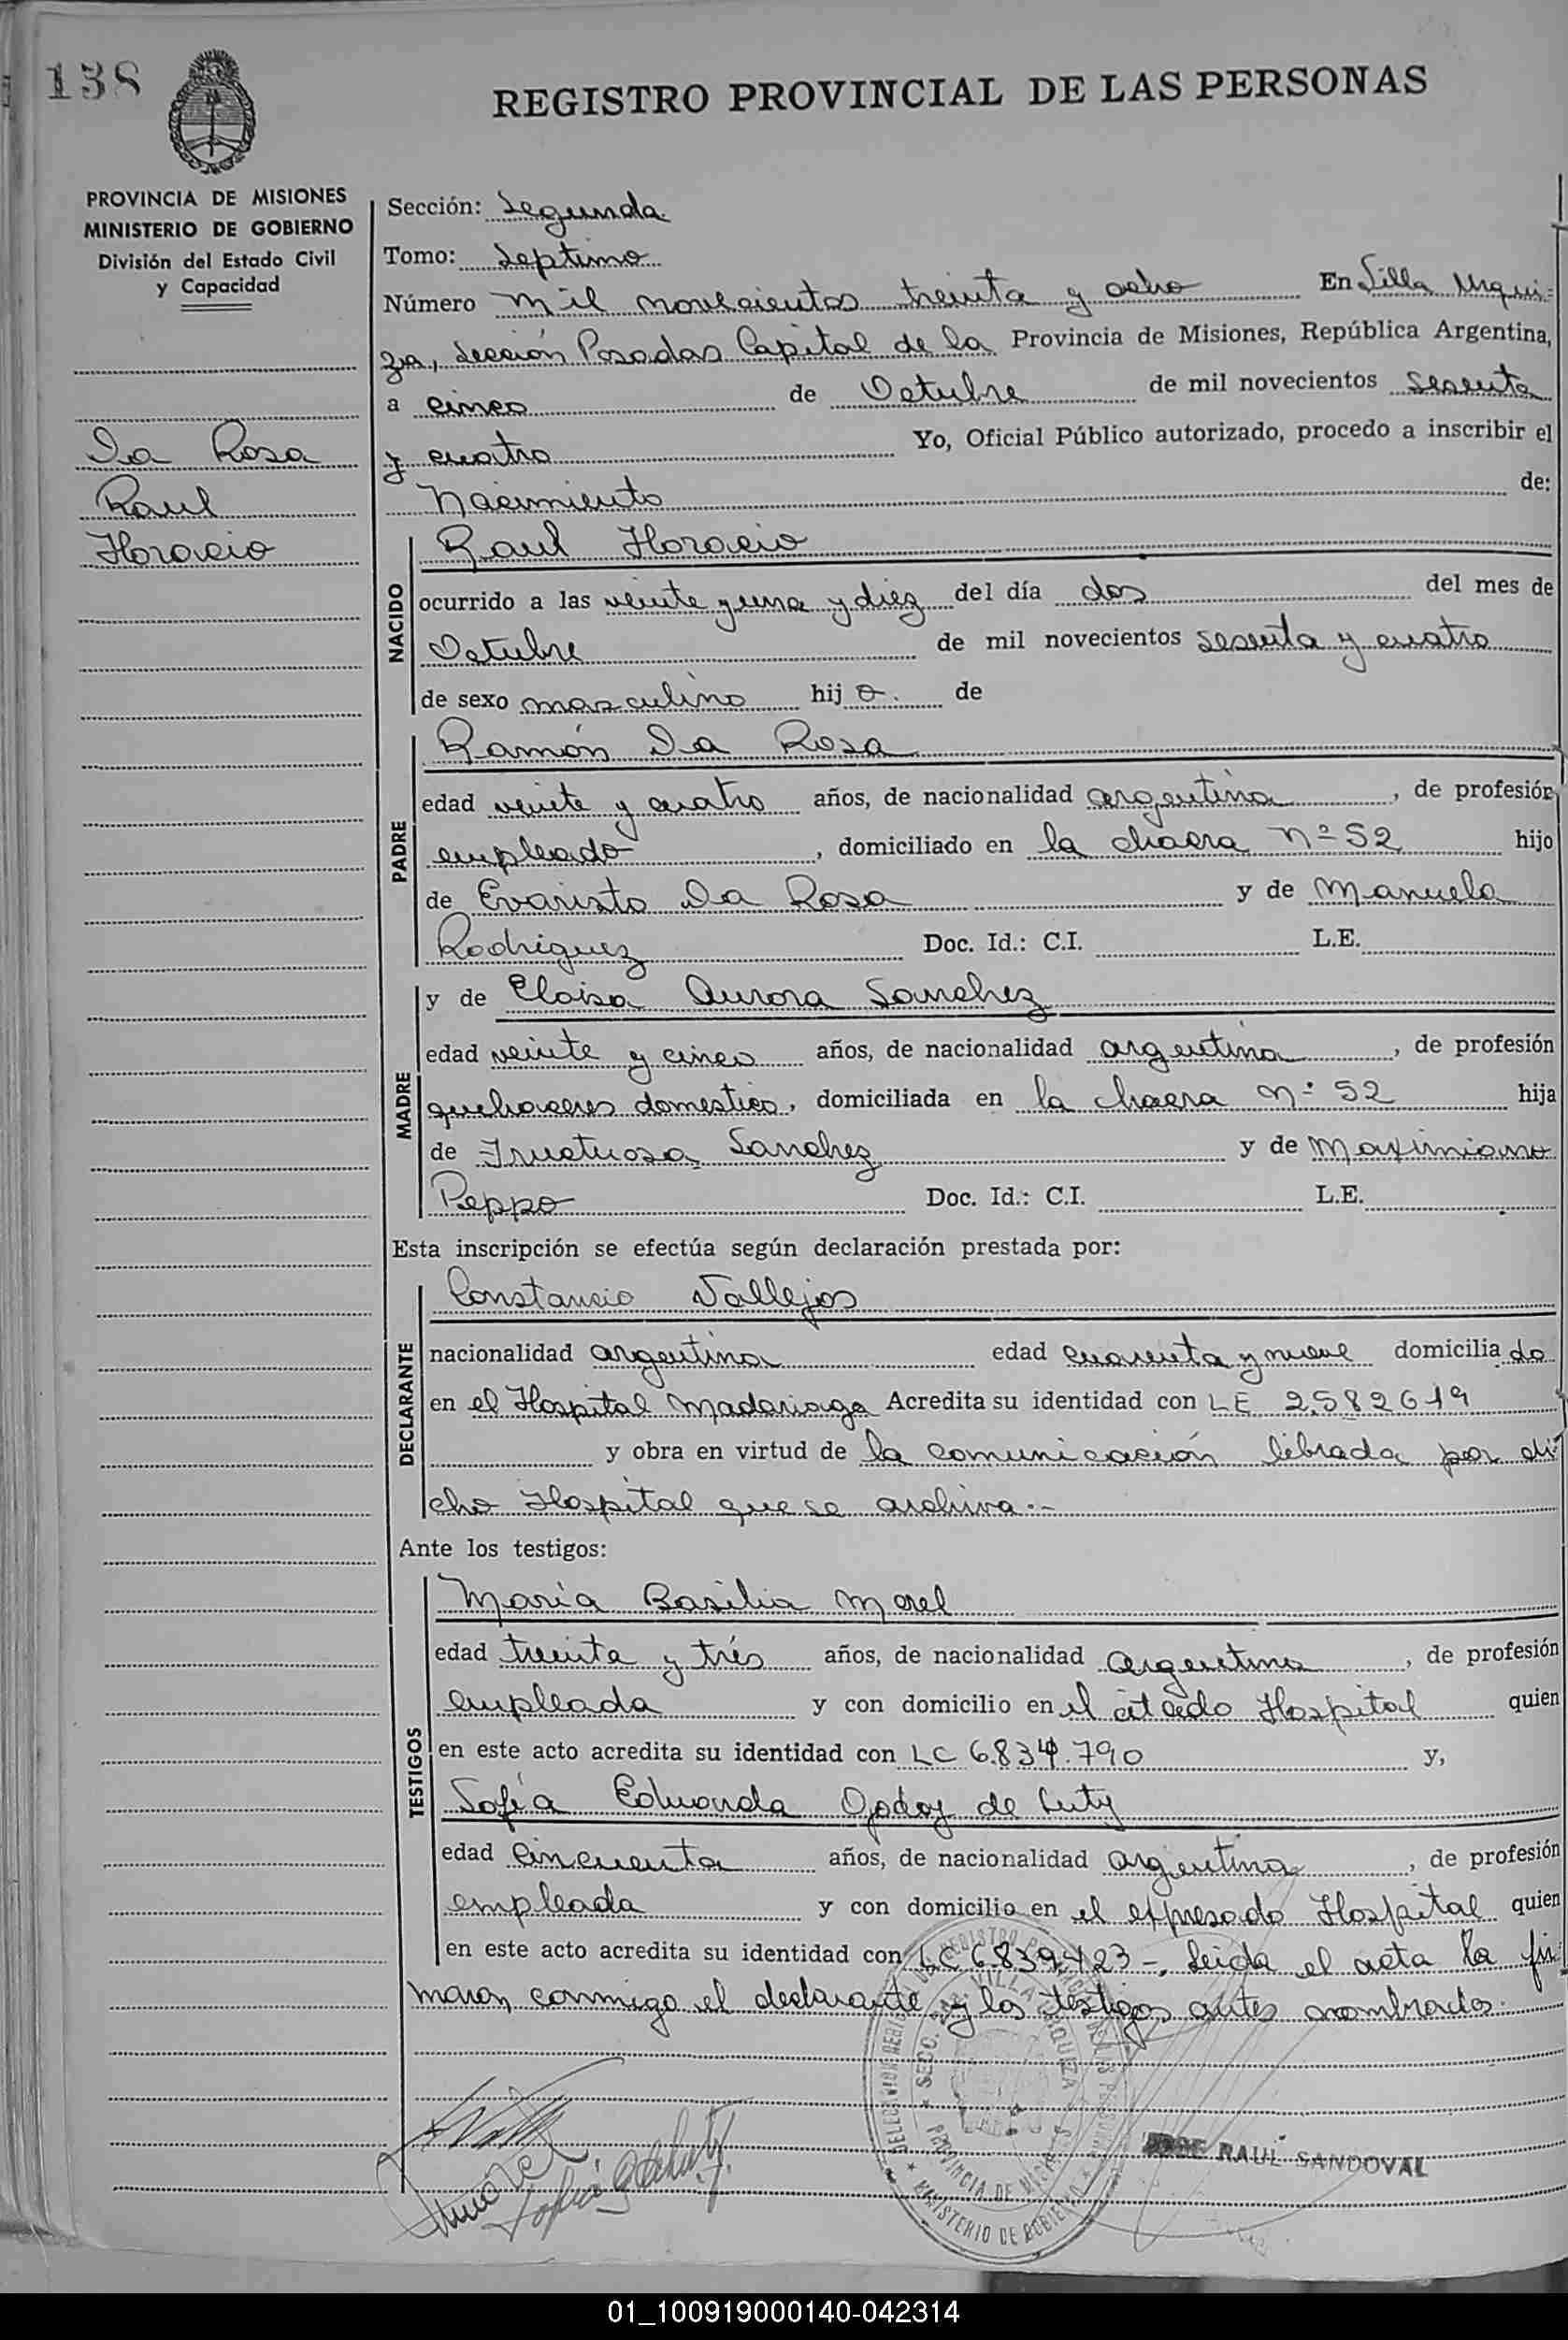 138
REGISTRO PROVINCIAL DE LAS PERSONAS
PROVINCIA DE MISIONES
MINISTERIO DE GOBIERNO
División del Estado Civil
y Capacidad
Da Rosa
Raul
Horacio
Sección: Segunda
Tomo: Septimo
Número mil novecientos treinta y ocho En Villa Urqui-
za, sección Posadas Capital de la Provincia de Misiones, República Argentina,
a cinco de Octubre de mil novecientos sesenta
y cuatro Yo, Oficial Público autorizado, procedo a inscribir el
Nacimiento de:
NACIDO
Raul Horacio
ocurrido a las veinte y una y diez del día dos del mes de
Octubre de mil novecientos sesenta y cuatro
de sexo masculino hij o. de
PADRE
Ramón Da Rosa
edad veinte y cuatro años, de nacionalidad argentina, de profesión
empleado, domiciliado en la chacra nº 52 hijo
de Evaristo Da Rosa y de Manuela
Rodriguez Doc. Id.: C.I. L.E.
MADRE
y de Eloisa Aurora Sanchez
edad veinte y cinco años, de nacionalidad argentina, de profesión
quehaceres domestico, domiciliada en la chacra nº 52 hija
de Fructuosa Sanchez y de Maximiano
Peppo Doc. Id.: C.I. L.E.
Esta inscripción se efectúa según declaración prestada por:
DECLARANTE
Constancio Vallejos
nacionalidad argentina edad cuarenta y nueve domicilia do
en el Hospital Madariaga Acredita su identidad con LE 2.582619
y obra en virtud de la comunicación librada por di-
cho Hospital que se archiva.--
Ante los testigos:
TESTIGOS
Maria Basilia Morel
edad treinta y trés años, de nacionalidad argentina, de profesión
empleada y con domicilio en el citado Hospital quien
en este acto acredita su identidad con LC 6.834.790 y,
Sofía Eduarda Godoy de Luty
edad cincuenta años, de nacionalidad argentina, de profesión
empleada y con domicilio en el expresado Hospital quien
en este acto acredita su identidad con LC 6.839.423-. Leida el acta la fir
maron conmigo el declarante y los testigos antes nombrados.
SECC. VILLA URQUIZA
PROVINCIA DE MISIONES
MINISTERIO DE GOBIERNO
JOSE RAUL SANDOVAL
01_100919000140-042314